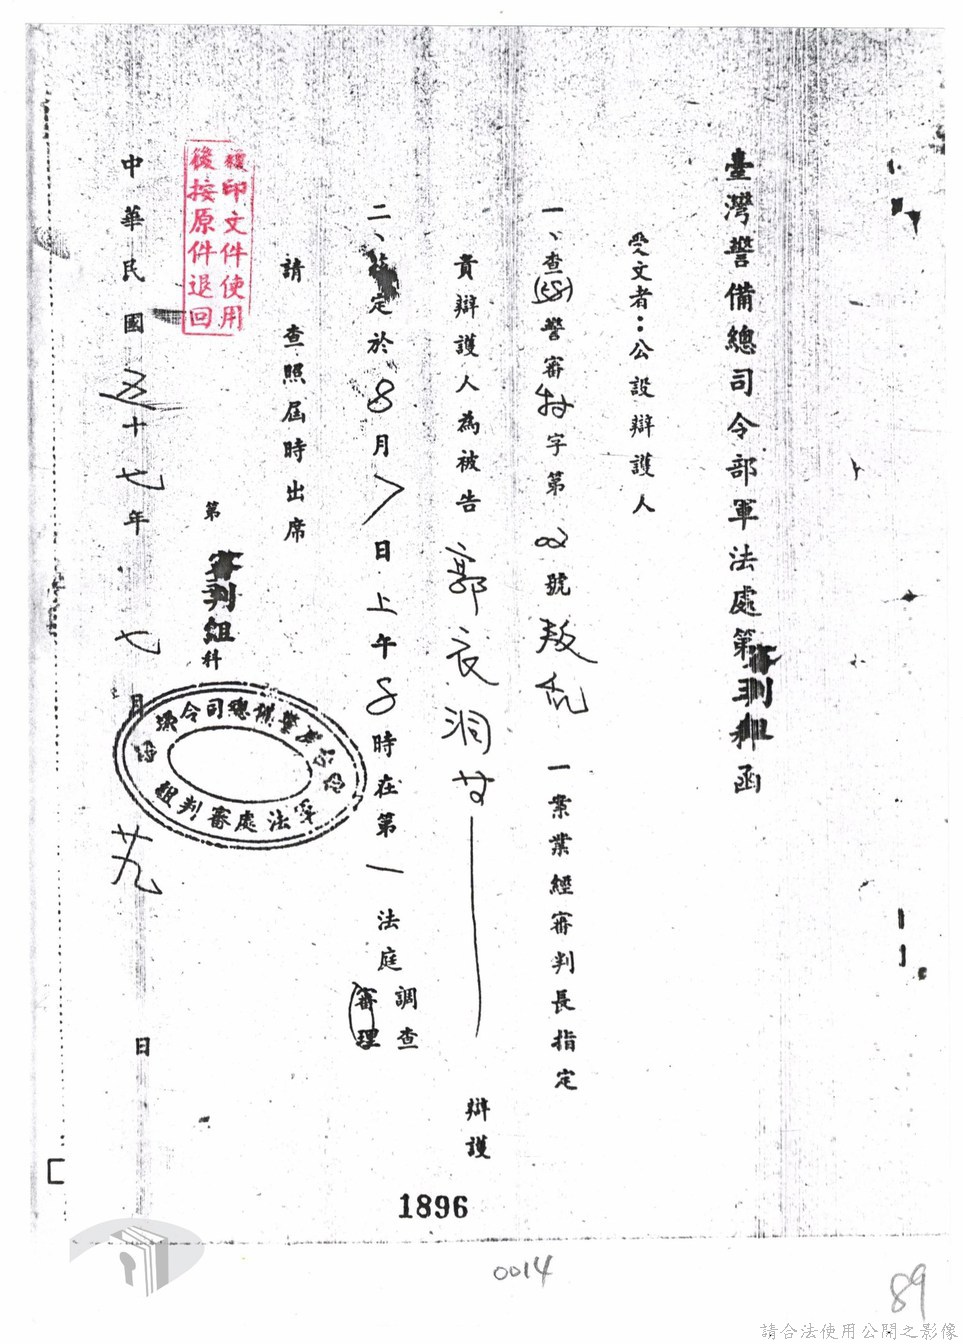 臺灣警備總司令部軍法處第審判組函
受文者：公設辯護人
一、查(58)警審特字第 號叛乱一案業經審判長指定
貴辯護人為被告郭衣洞 辯護
二、 定於8月 日上午8時在第一法庭調查
審理
請查照屆時出席
第審判組科
複印文件使用
後按原件退回
中華民國五十七年七月廿九日
臺灣警備總司令部
軍法處審判組
1896
0014
89
請合法使用公開之影像